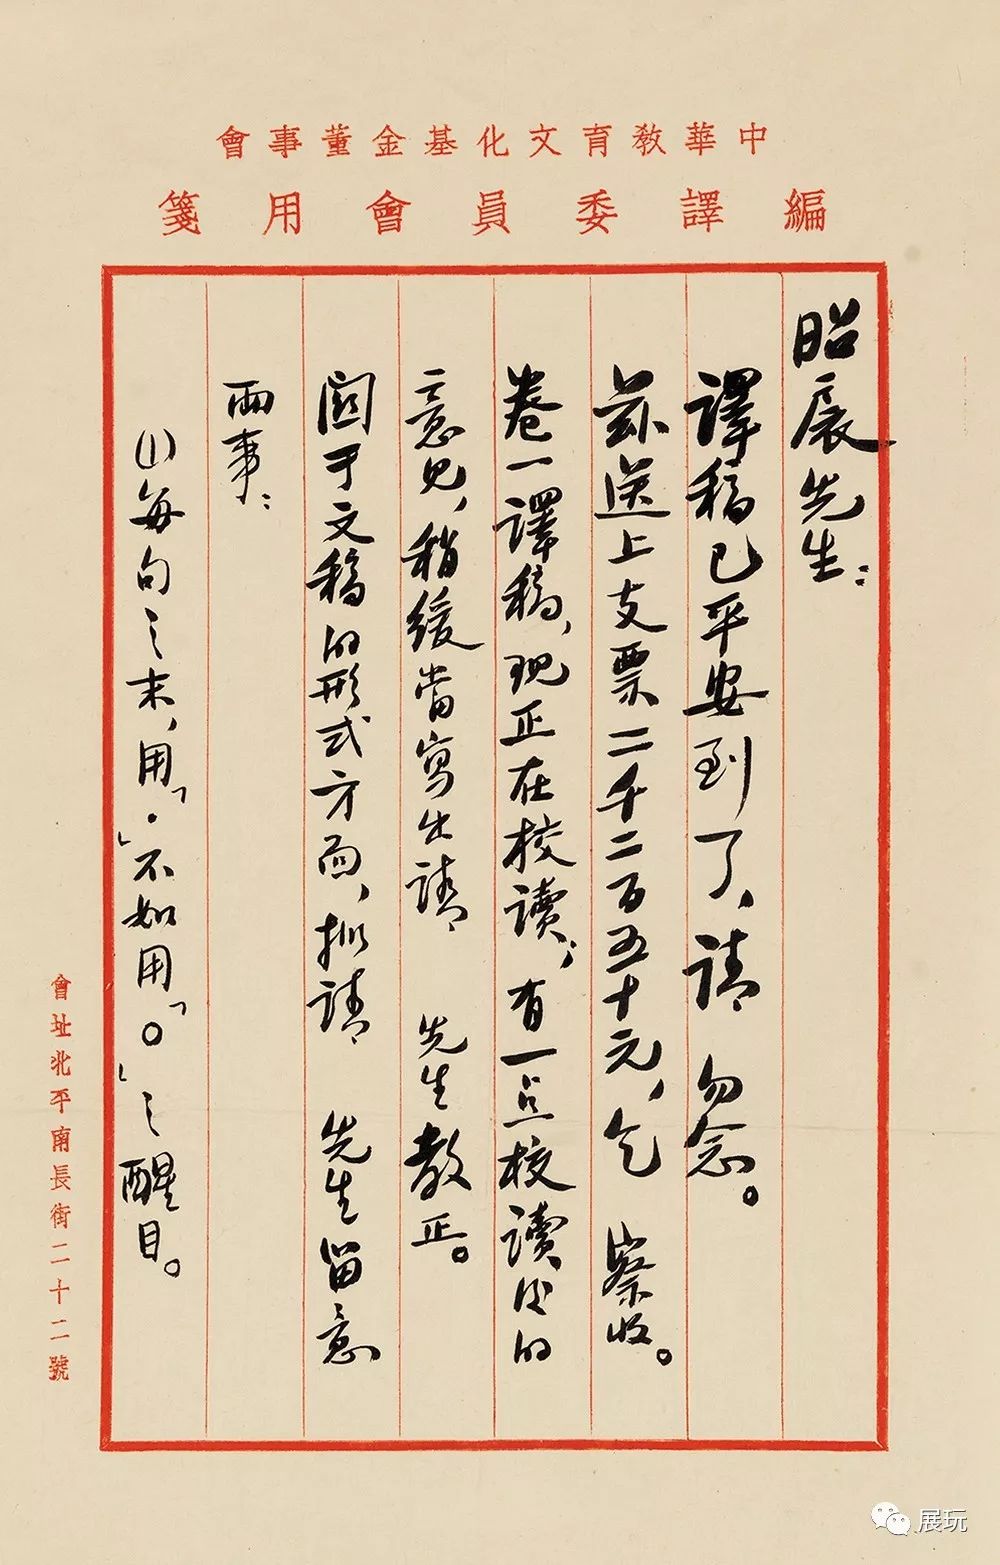 中華教育文化基金董事會
編譯委員會用箋
昭扆先生：
譯稿已平安到了，請 勿念。
茲送上支票二千二百五十元，乞 察收。
卷一譯稿，現正在校讀；有一点校讀后的
意見，稍緩當寫出請 先生教正。
関于文稿的形式方面，擬請 先生留意
両事：
(1)每句之末，用「．」不如用「。」之醒目。
會址北平南長街二十二號
展玩